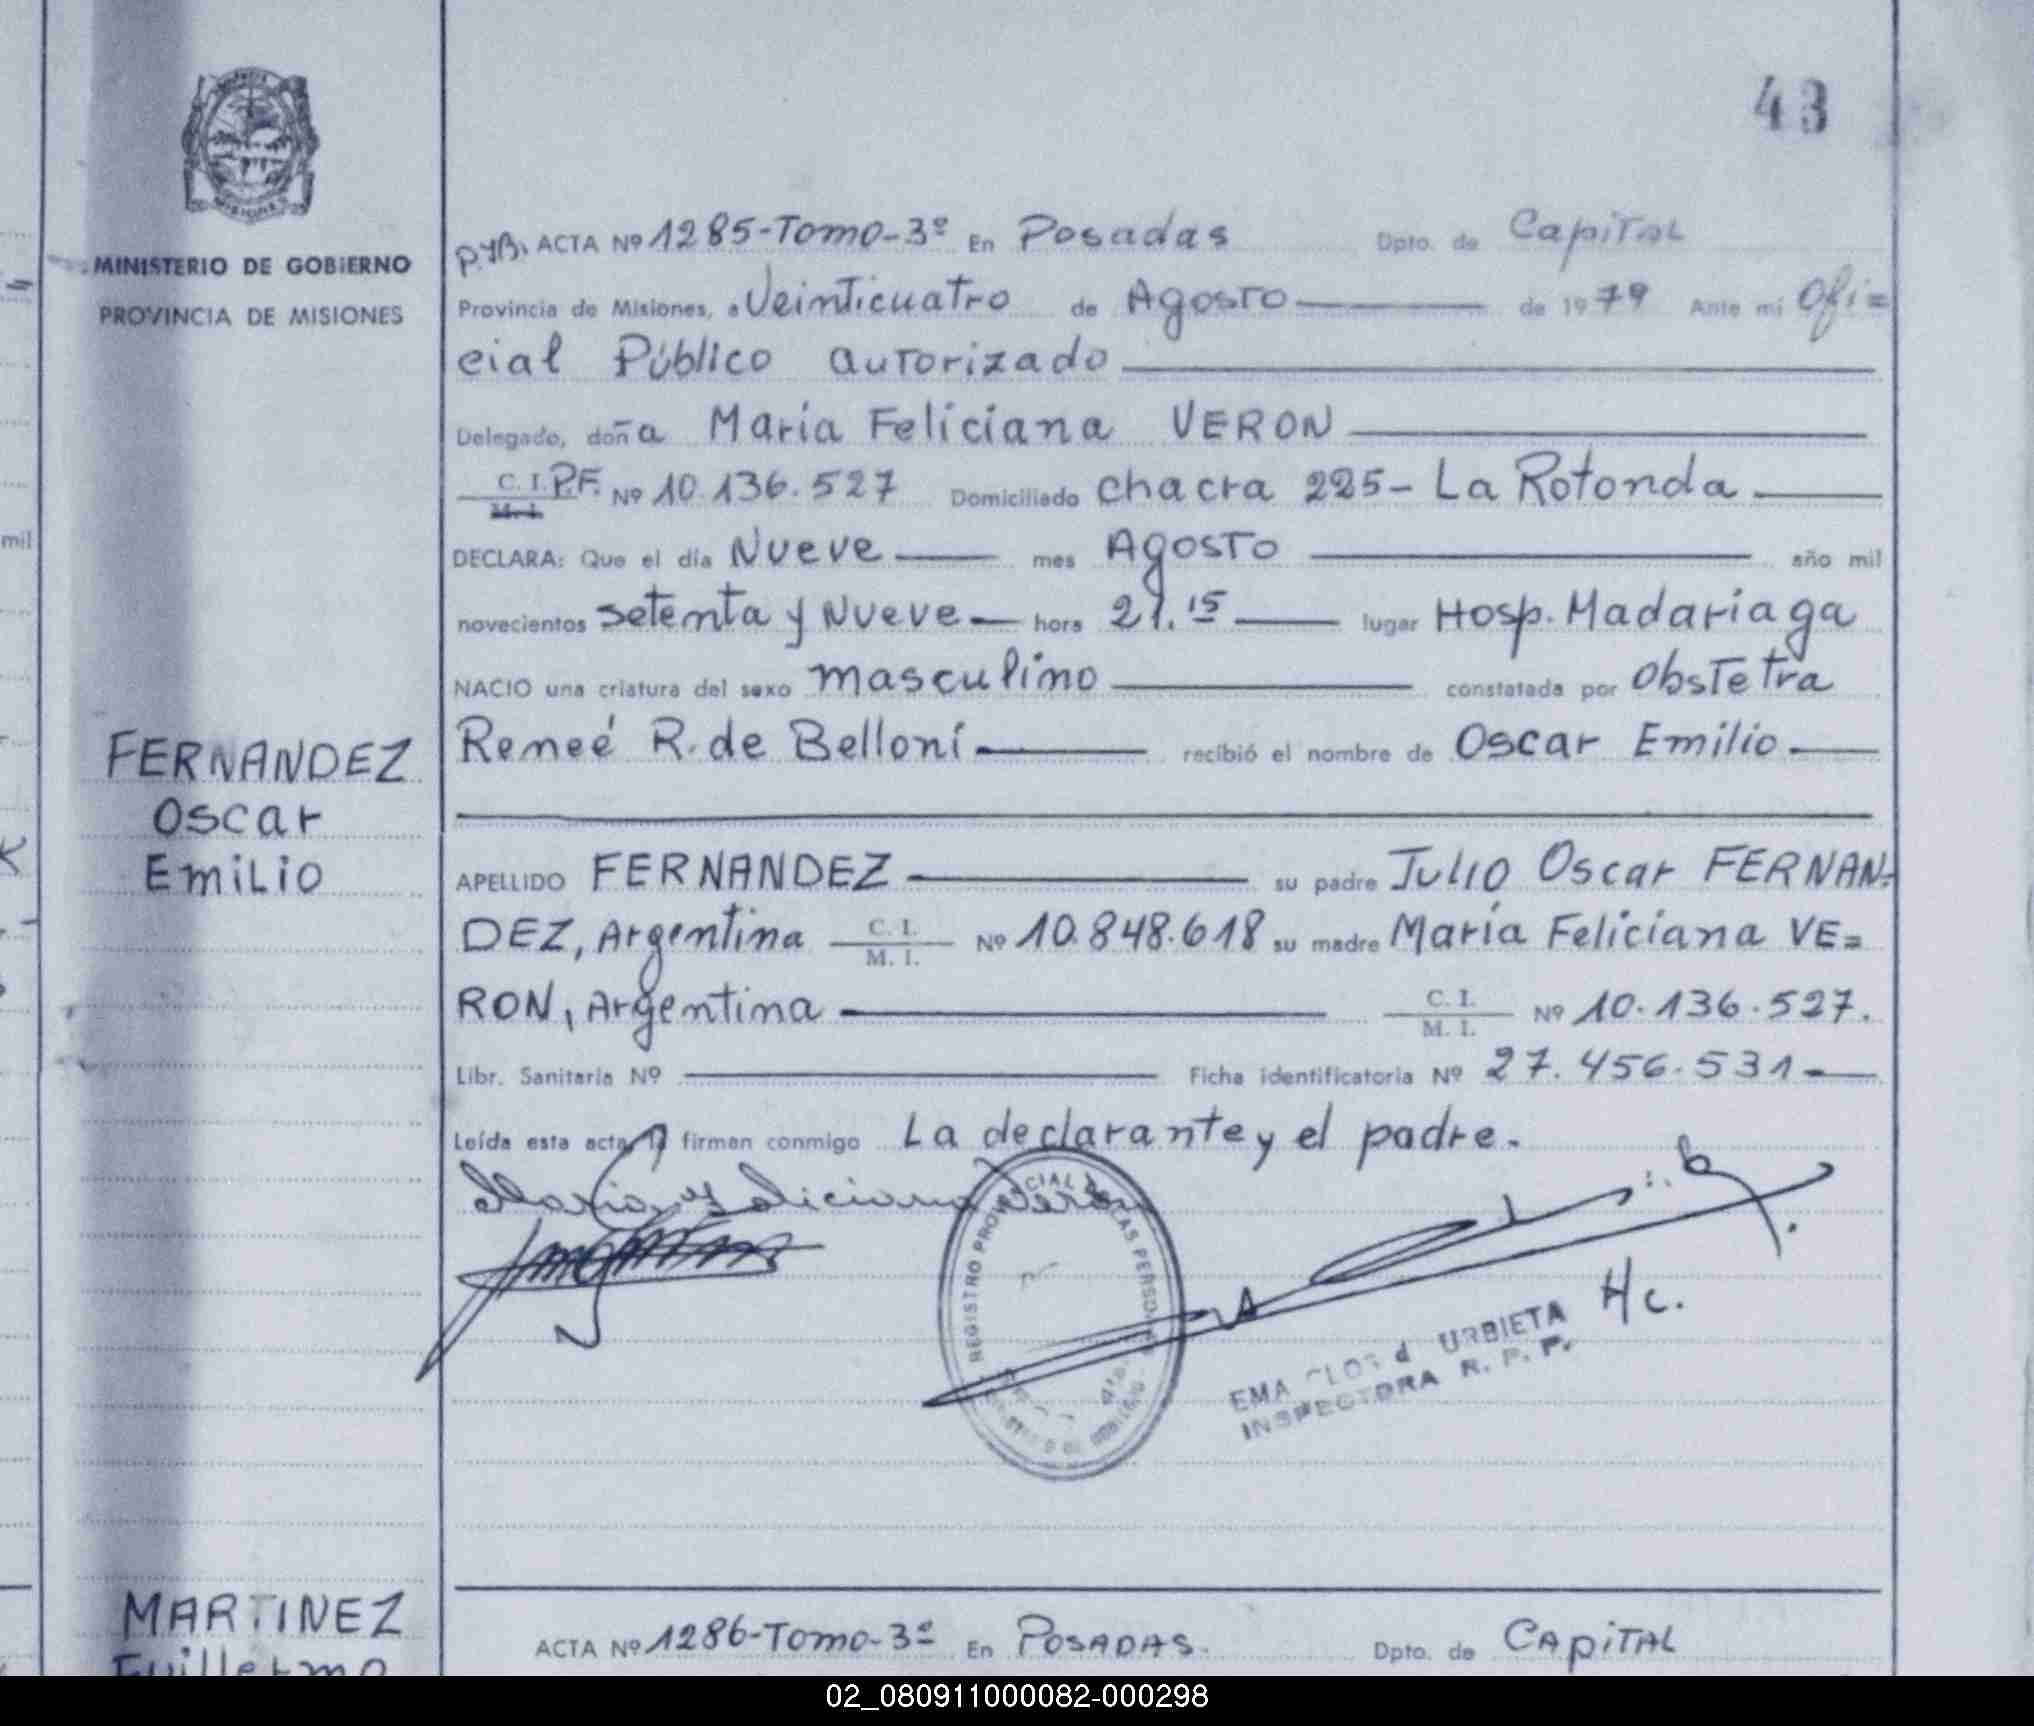 43
MINISTERIO DE GOBIERNO
PROVINCIA DE MISIONES
P.yB. ACTA Nº 1285-Tomo-3º En Posadas Dpto. de Capital
Provincia de Misiones, a Veinticuatro de Agosto de 1979 Ante mí Ofi=
cial Público autorizado
Delegado, doña María Feliciana VERON
C. I. P.F. Nº 10.136.527 Domiciliado chacra 225- La Rotonda
M. I.
DECLARA: Que el día Nueve mes Agosto año mil
novecientos setenta y Nueve hora 21.15 lugar Hosp. Madariaga
NACIO una criatura del sexo masculino constatada por Obstetra
Reneé R. de Belloni recibió el nombre de Oscar Emilio
FERNANDEZ
Oscar
Emilio
APELLIDO FERNANDEZ su padre Julio Oscar FERNAN-
DEZ, Argentina C. I. M. I. Nº 10.848.618 su madre María Feliciana VE=
RON, Argentina C. I. M. I. Nº 10.136.527.
Libr. Sanitaria Nº Ficha identificatoria Nº 27.456.531
Leída esta acta, la firman conmigo La declarante y el padre.
Maria Feliciana Veron
REGISTRO PROVINCIAL DE LAS PERSONAS
Hc.
EMA URBIETA
INSPECTORA R. P. P.
MARTINEZ
Guillermo
ACTA Nº 1286-Tomo-3º En POSADAS. Dpto. de CAPITAL
mil
02_080911000082-000298